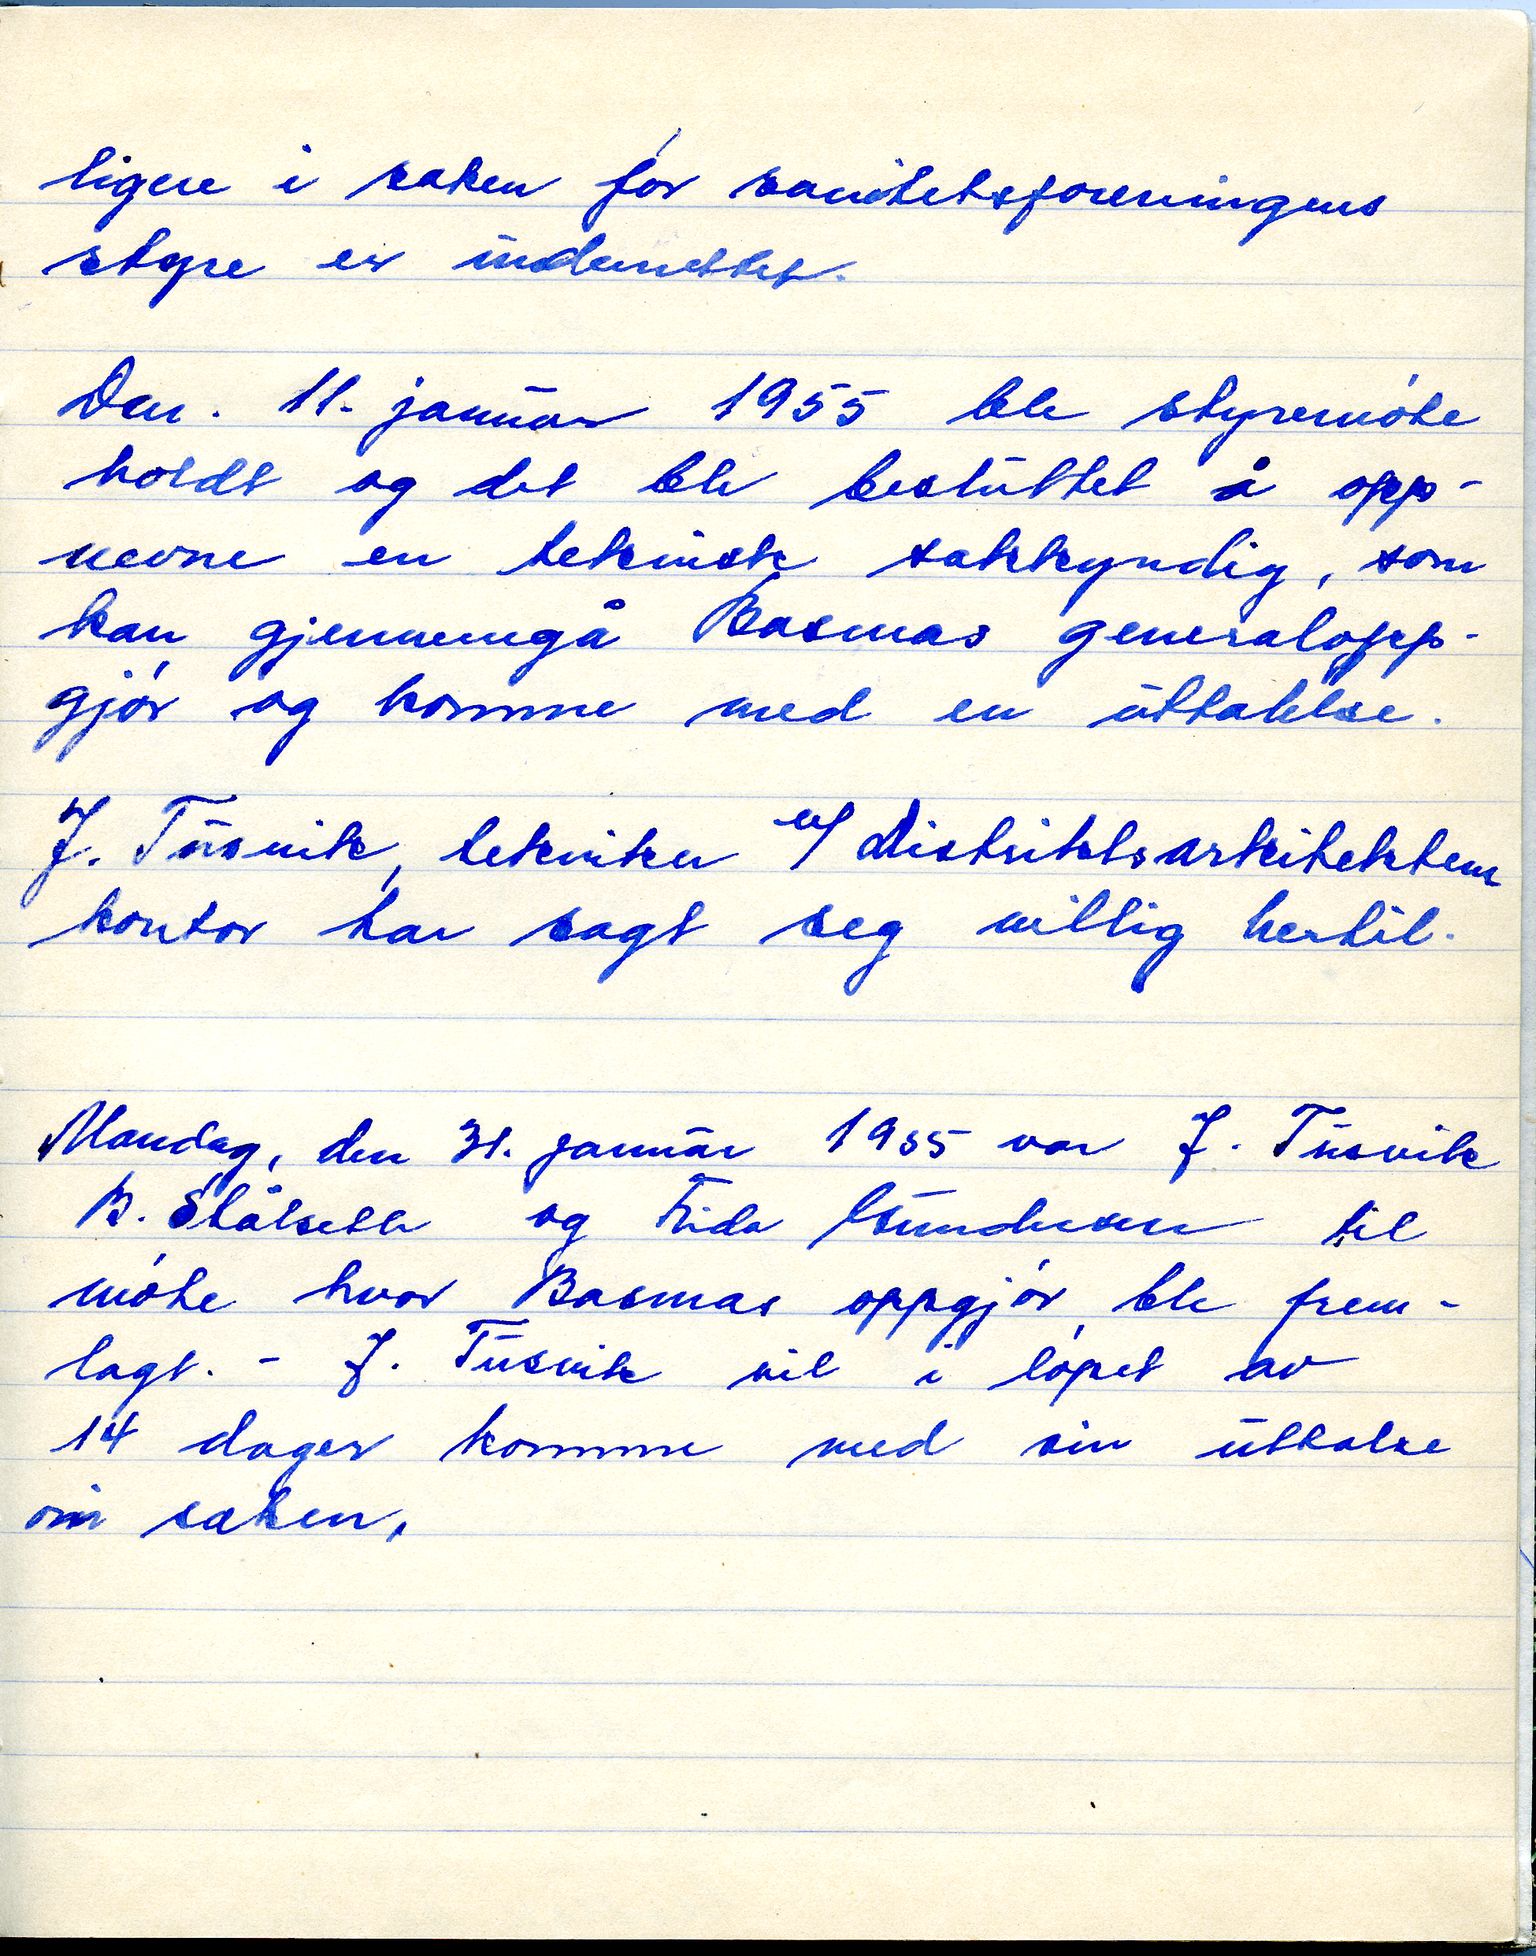 ligere i saken før sanitetsforeningens
styre er underrettet.
Den. 11. januar 1955 ble styremøte
holdt og det ble besluttet å opp-
nevne en teknisk sakkyndig, som
kan gjennemgå Basmas generalopp-
gjør og komme med en uttalelse.
J. Tusvik, tekniker v/ Distriktsarkitektens
kontor har sagt seg villig hertil.
Mandag, den 31. januar 1955 var J. Tusvik
B. Stålseth og Frida Gundersen til
møte hvor Basmas oppgjør ble frem-
lagt. - J. Tusvik vil i løpet av
14 dager komme med sin uttalse
om saken,